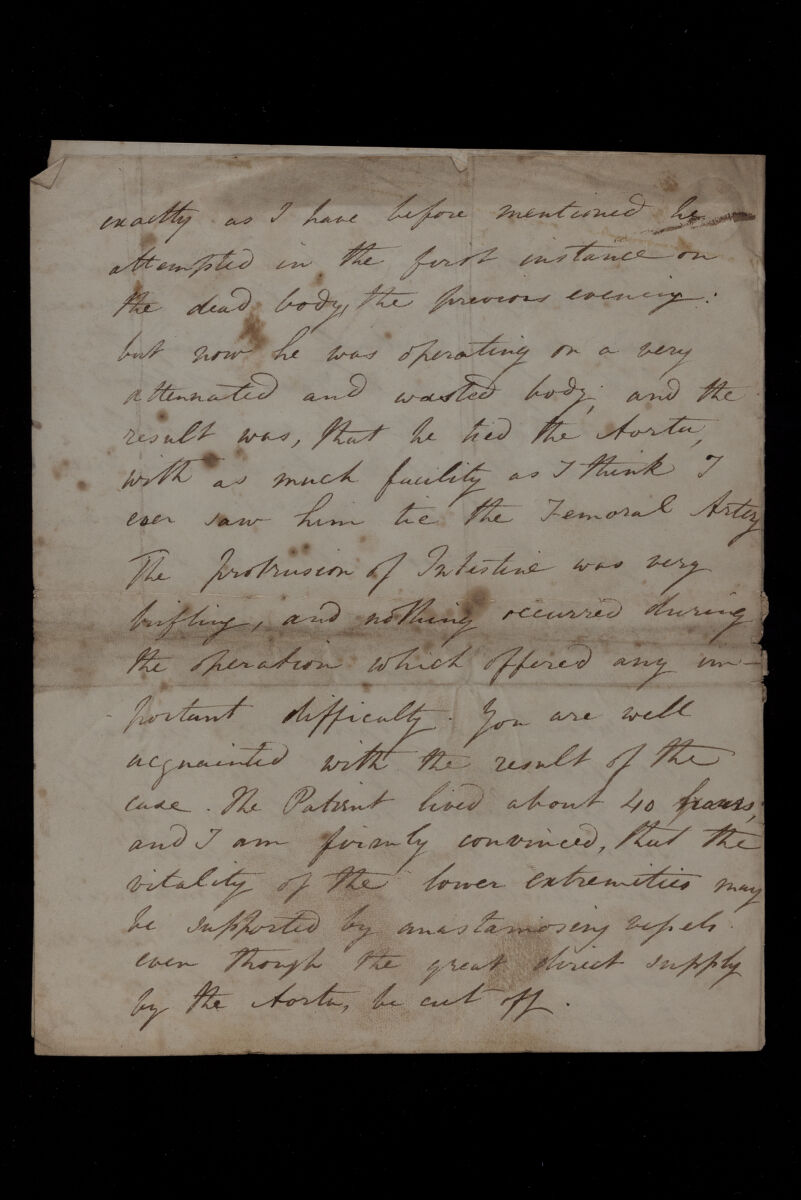 exactly as I have before mentioned he
attempted in the first instance on
the dead body, the previous evening:
but now he was operating on a very
attenuated and wasted body, and the
result was, that he tied the Aorta,
with as much facility as I think I
ever saw him tie the Femoral Artery
The protrusion of Intestine was very
trifling, and nothing occurred during
the operation which offered any im-
portant difficulty. You are well
acquainted with the result of the
case. The Patient lived about 40 hours,
and I am firmly convinced, that the
vitality of the lower extremities may
be supported by anastamosing vessels
even though the great direct supply
by the Aorta, be cut off.